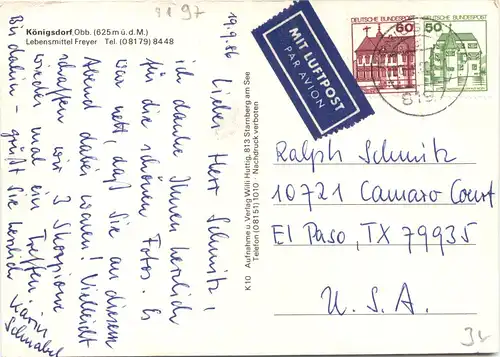 8197
Königsdorf, Obb. (625 m ü. d. M.)
Lebensmittel Freyer Tel. (08179) 8448
19.9.86
Lieber Herr Schmitz!
ich danke Ihnen herzlich
für die schönen Fotos. Es
war nett, daß Sie an diesem
Abend dabei waren! Vielleicht
schaffen wir 3 Skorpione
wieder mal ein Treffen.
Bis dahin – grüßt Sie herzlich
Karin
Schnabel
K 10 Aufnahme u. Verlag Willi Huttig, 813 Starnberg am See
Telefon (08151) 1010 · Nachdruck verboten
MIT LUFTPOST
PAR AVION
DEUTSCHE BUNDESPOST
60
DEUTSCHE BUNDESPOST
50
819
Ralph Schmitz
10721 Camaro Court
El Paso, TX 79935
U. S. A.